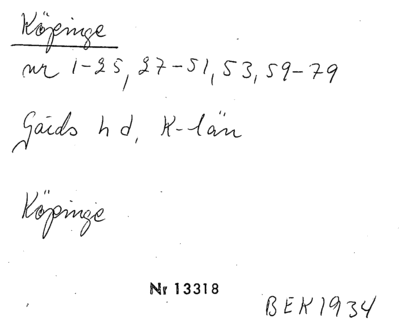 Köpinge
nr 1-25, 27-51, 53, 59-79
Gärds hd, K-län
Köpinge
Nr 13318
BEK1934